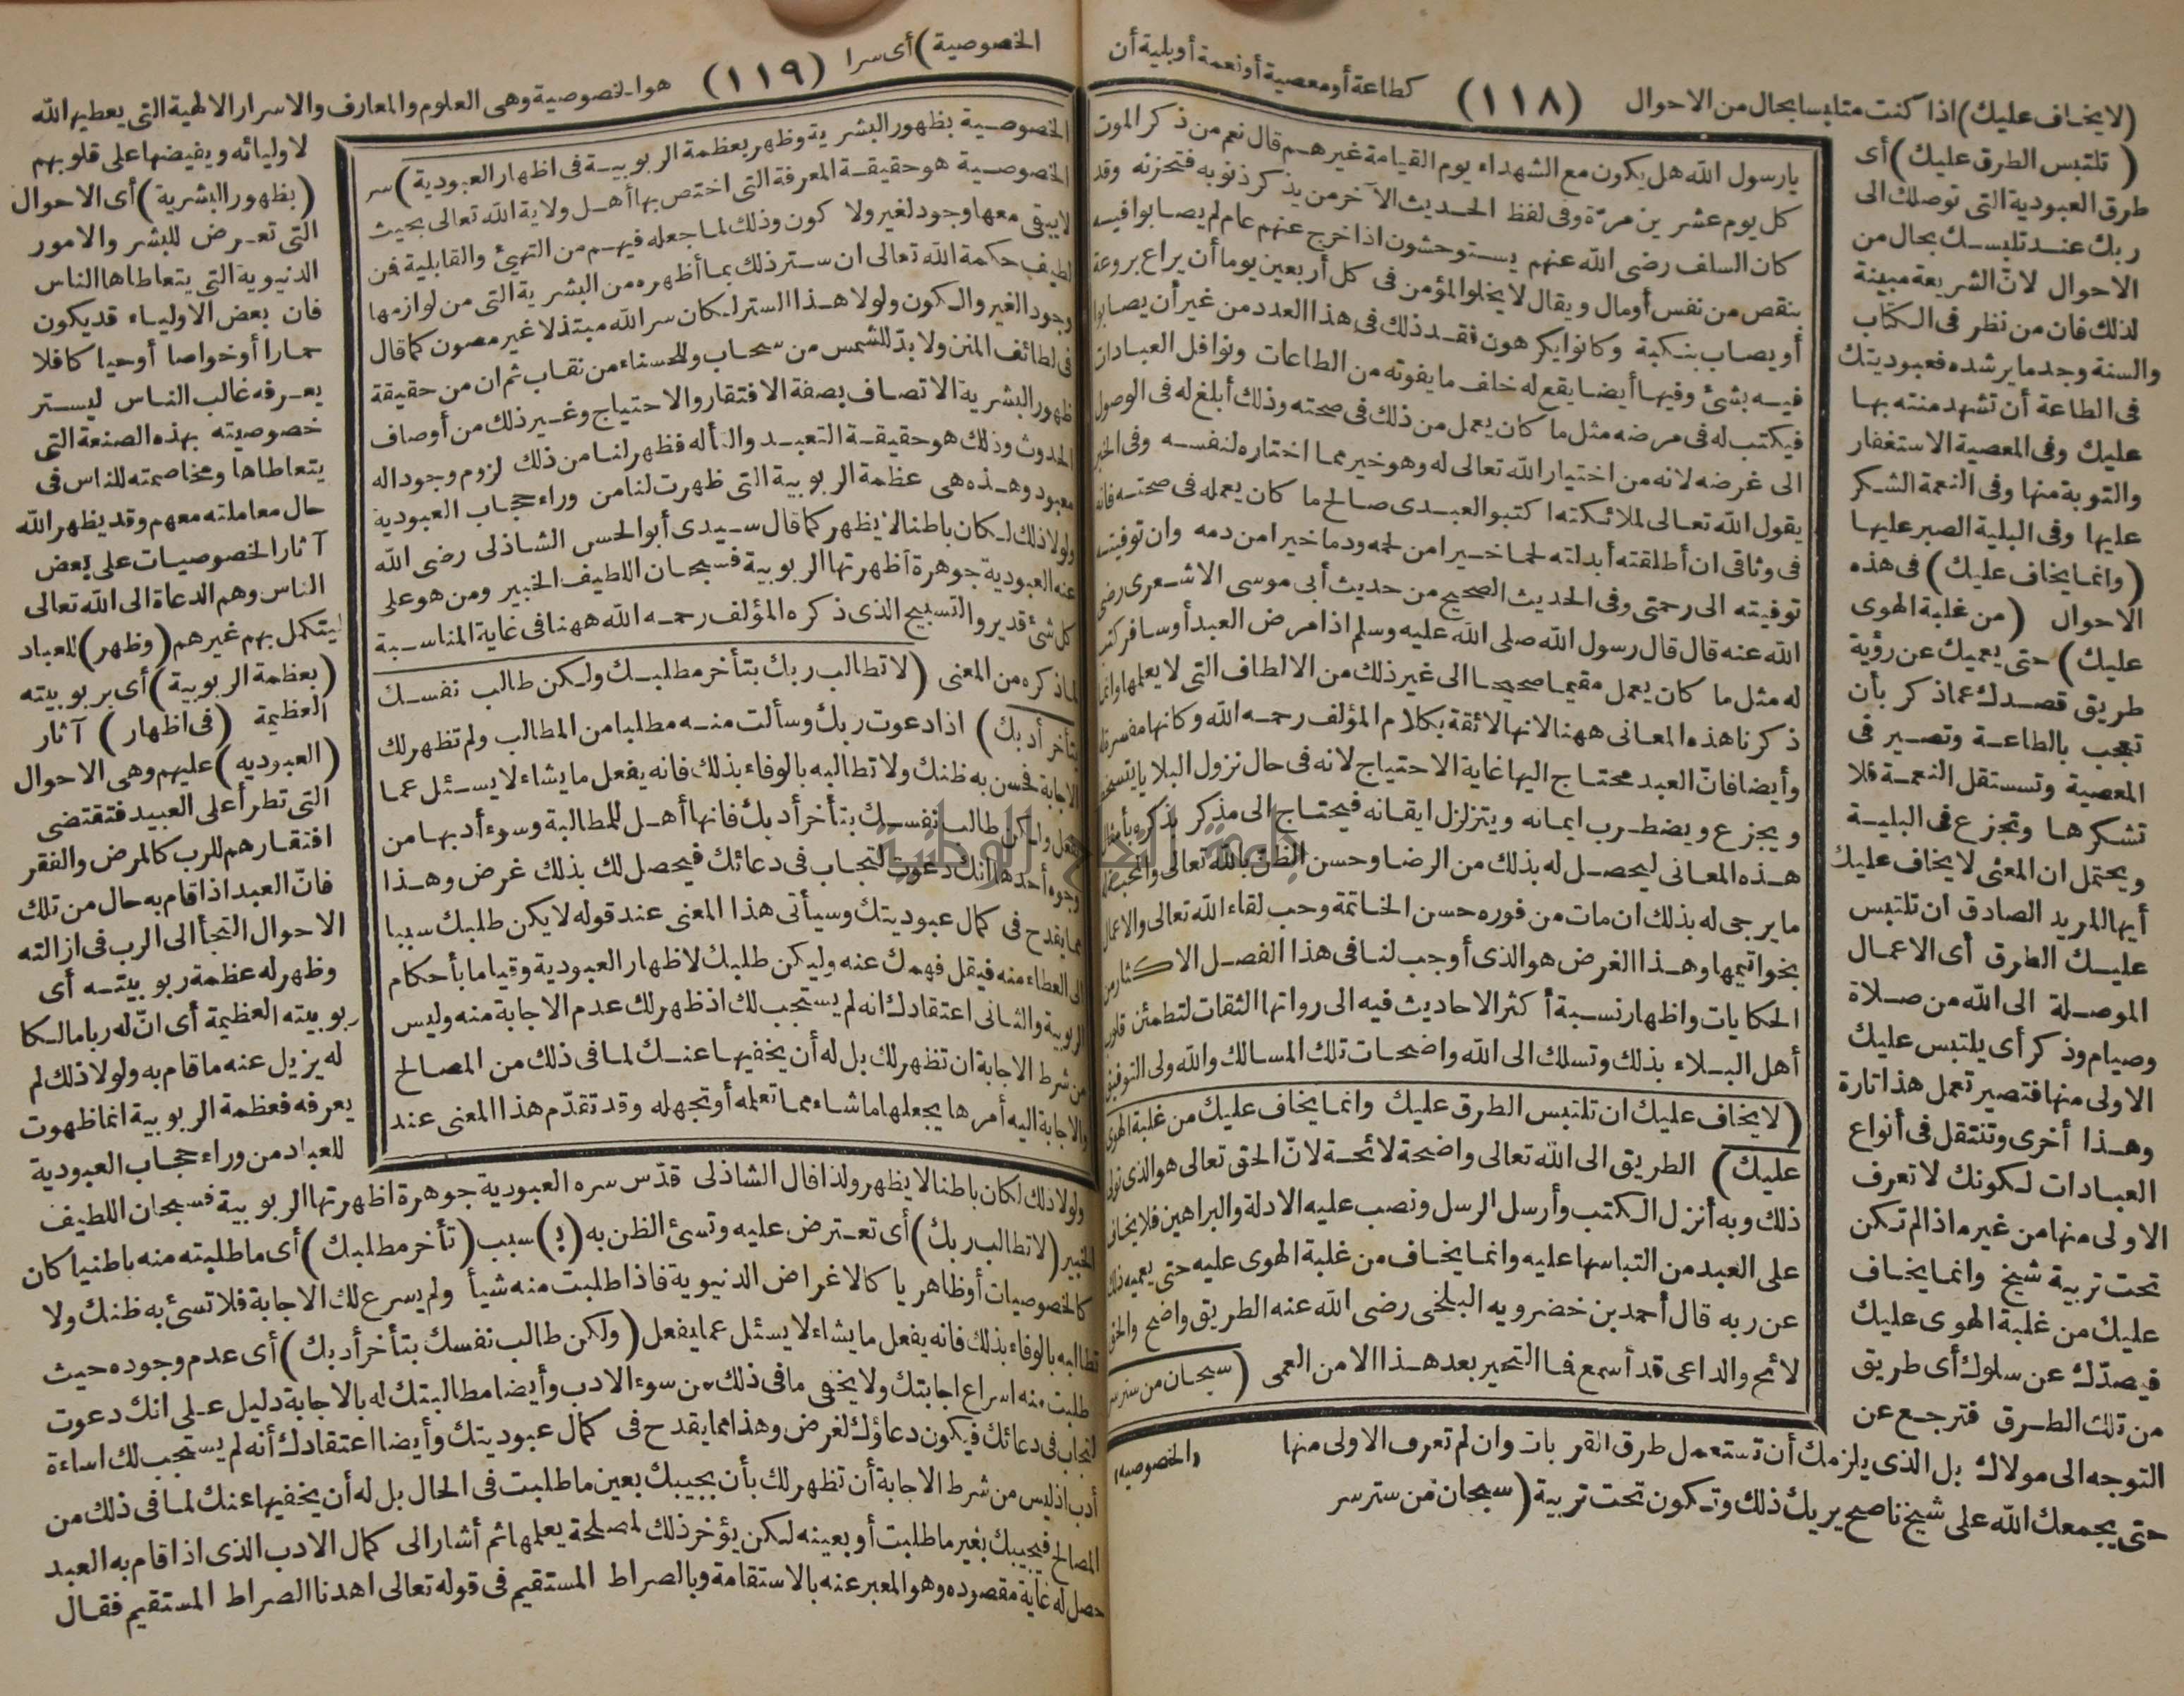 (١١٨)
كطاعة أو معصية أو نعمة أو بلية أن
(لا يخاف عليك) اذا كنت متلبسا بحال من الاحوال
( تلتبس الطرق عليك) أى
طرق العبودية التى توصلك الى
ربك عند تلبسك بحال من
الاحوال لانّ الشريعة مبينة
لذلك فان من نظر فى الكتاب
والسنة وجد ما يرشده فعبوديتك
فى الطاعة أن تشهد منته بها
عليك وفى المعصية الاستغفار
والتوبة منها وفى النعمة الشكر
عليها وفى البلية الصبر عليها
(وانما يخاف عليك) فى هذه
الاحوال (من غلبة الهوى
عليك) حتى يعميك عن رؤية
طريق قصدك عماذكر بأن
تعجب بالطاعة وتصير فى
المعصية وتستقل النعمة فلا
تشكرها وتجزع فى البلية
ويحتمل ان المعنى لا يخاف عليك
أيها المريد الصادق ان تلتبس
عليك الطرق أى الاعمال
الموصلة الى الله من صلاة
وصيام وذكر أى يلتبس عليك
الاولى منها فتصير تعمل هذا تارة
وهذا أخرى وتنتقل فى أنواع
العبادات لكونك لا تعرف
الاولى منها من غيره اذا لم تكن
تحت تربية شيخ وانما يخاف
عليك من غلبة الهوى عليك
فيصدّك عن سلوك أى طريق
من تلك الطرق فترجع عن
التوجه الى مولاك بل الذى يلزمك أن تستعمل طرق القربات وان لم تعرف الاولى منها
حتى يجمعك الله على شيخ ناصح يريك ذلك وتكون تحت تربية (سبحان من ستر سر
يارسول الله هل يكون مع الشهداء يوم القيامة غيرهم قال نعم من ذكر الموت
كل يوم عشرين مرّة وفى لفظ الحديث الآخر من يذكر ذنوبه فتحزنه وقد
كان السلف رضى الله عنهم يستوحشون اذا خرج عنهم عام لم يصابوا فيه
بنقص من نفس أو مال ويقال لا يخلو المؤمن فى كل أربعين يوما أن يراع بروعة
أو يصاب بنكبة وكانوا يكرهون فقد ذلك فى هذا العدد من غير أن يصابوا
فيه بشئ وفيها أيضا يقع له خلف ما يفوته من الطاعات ونوافل العبادات
فيكتب له فى مرضه مثل ما كان يعمل من ذلك فى صحته وذلك أبلغ له فى الوصول
الى غرضه لانه من اختيار الله تعالى له وهو خير مما اختاره لنفسه وفى الخبر
يقول الله تعالى لملائكته اكتبوا لعبدى صالح ما كان يعمله فى صحته فانه
فى وثاقى ان أطلقته أبدلته لحما خيرا من لحمه ودما خيرا من دمه وان توفيته
توفيته الى رحمتى وفى الحديث الصحيح من حديث أبى موسى الاشعرى رضى
الله عنه قال قال رسول الله صلى الله عليه وسلم اذا مرض العبد أو سافر كتب
له مثل ما كان يعمل مقيما صحيحا الى غير ذلك من الالطاف التى لا يعلمها وانما
ذكرنا هذه المعانى ههنا لانها لائقة بكلام المؤلف رحمه الله وكانها مفسرة له
وأيضا فانّ العبد محتاج اليها غاية الاحتياج لانه فى حال نزول البلايا يتسخط
ويجزع ويضطرب ايمانه ويتزلزل ايقانه فيحتاج الى مذكر يذكره بأمثال
هذه المعانى ليحصل له بذلك من الرضا وحسن الظن بالله تعالى والمحبة
ما يرجى له بذلك ان مات من فوره حسن الخاتمة وحب لقاء الله تعالى والاعمال
بخواتيمها وهذا الغرض هو الذى أوجب لنا فى هذا الفصل الاكثار من
الحكايات واظهار نسبة أكثر الاحاديث فيه الى رواتها الثقات لتطمئن قلوب
أهل البلاء بذلك وتسلك الى الله واضحات تلك المسالك والله ولى التوفيق
(لا يخاف عليك ان تلتبس الطرق عليك وانما يخاف عليك من غلبة الهوى
عليك) الطريق الى الله تعالى واضحة لائحة لانّ الحق تعالى هو الذى تولى
ذلك وبه أنزل الكتب وأرسل الرسل ونصب عليه الادلة والبراهين فلا يخاف
على العبد من التباسها عليه وانما يخاف من غلبة الهوى عليه حتى يعميه ذلك
عن ربه قال أحمد بن خضرويه البلخى رضى الله عنه الطريق واضح والحق
لائح والداعى قد أسمع فما التحير بعد هذا الا من العمى (سبحان من ستر سر
الخصوصية
(١١٩)
الخصوصية) أى سرا
هو الخصوصية وهى العلوم والمعارف والاسرار الالهية التى يعطيها الله
لاوليائه ويفيضها على قلوبهم
(بظهور البشرية) أى الاحوال
التى تعرض للبشر والامور
الدنيوية التى يتعاطاها الناس
فان بعض الاولياء قد يكون
حمارا أو خواصا أو حيا كا فلا
يعرفه غالب الناس ليستر
خصوصيته بهذه الصنعة التى
يتعاطاها ومخاصمته للناس فى
حال معاملته معهم وقد يظهر الله
آثار الخصوصيات على بعض
الناس وهم الدعاة الى الله تعالى
ليتكمل بهم غيرهم (وظهر) للعباد
(بعظمة الربوبية) أى بربوبيته
العظيمة (فى اظهار) آثار
(العبوديه) عليهم وهى الاحوال
التى تطرأ على العبيد فتقتضى
افتقارهم للرب كالمرض والفقر
فانّ العبد اذا قام به حال من تلك
الاحوال التجأ الى الرب فى ازالته
وظهر له عظمة ربوبيته أى
ربوبيته العظيمة أى انّ له ربا مالكا
له يزيل عنه ما قام به ولولا ذلك لم
يعرفه فعظمة الربوبية انما ظهرت
للعباد من وراء حجاب العبودية
ولولا ذلك لكان باطنا لا يظهر ولذا قال الشاذلى قدّس سره العبودية جوهرة اظهرتها الربوبية فسبحان اللطيف
الخبير (لا تطالب ربك) أى تعترض عليه وتسئ الظن به (ب) سبب (تأخر مطلبك) أى ما طلبته منه باطنيا كان
كالخصوصيات أو ظاهريا كالاغراض الدنيوية فاذا طلبت منه شيأ ولم يسرع لك الاجابة فلا تسئ به ظنك ولا
تطالبه بالوفاء بذلك فانه يفعل ما يشاء لا يسئل عما يفعل (ولكن طالب نفسك بتأخر أدبك) أى عدم وجوده حيث
طلبت منه اسراع اجابتك ولا يخفى ما فى ذلك من سوء الادب وأيضا مطالبتك له بالاجابة دليل على انك دعوت
لتجاب فى دعائك فيكون دعاؤك لغرض وهذا مما يقدح فى كمال عبوديتك وأيضا اعتقادك أنه لم يستجب لك اساءة
أدب اذ ليس من شرط الاجابة أن تظهر لك بأن يجيبك بعين ما طلبت فى الحال بل له أن يخفيها عنك لما فى ذلك من
المصالح فيجيبك بغير ما طلبت أو بعينه لكن يؤخر ذلك لمصلحة يعلمها ثم أشار الى كمال الادب الذى اذا قام به العبد
حصل له غاية مقصوده وهو المعبر عنه بالاستقامة وبالصراط المستقيم فى قوله تعالى اهدنا الصراط المستقيم فقال
الخصوصية بظهور البشرية وظهر بعظمة الربوبية فى اظهار العبودية) سر
الخصوصية هو حقيقة المعرفة التى اختص بها أهل ولاية الله تعالى بحيث
لا يبقى معها وجود لغير ولا كون وذلك لما جعله فيهم من التهيئ والقابلية فمن
لطيف حكمة الله تعالى ان ستر ذلك بما أظهره من البشرية التى من لوازمها
وجود الغير والكون ولولا هذا الستر لكان سر الله مبتذلا غير مصون كما قال
فى لطائف المنن ولا بدّ للشمس من سحاب وللحسناء من نقاب ثم ان من حقيقة
ظهور البشرية الاتصاف بصفة الافتقار والاحتياج وغير ذلك من أوصاف
الحدوث وذلك هو حقيقة التعبد والتأله فظهر لنا من ذلك لزوم وجود اله
معبود وهذه هى عظمة الربوبية التى ظهرت لنا من وراء حجاب العبودية
ولولا ذلك لكان باطنا لا يظهر كما قال سيدى أبو الحسن الشاذلى رضى الله
عنه العبودية جوهرة أظهرتها الربوبية فسبحان اللطيف الخبير ومن هو على
كل شئ قدير والتسبيح الذى ذكره المؤلف رحمه الله ههنا فى غاية المناسبة
لما ذكره من المعنى (لا تطالب ربك بتأخر مطلبك ولكن طالب نفسك
بتأخر أدبك) اذا دعوت ربك وسألت منه مطلبا من المطالب ولم تظهر لك
الاجابة فحسن به ظنك ولا تطالبه بالوفاء بذلك فانه يفعل ما يشاء لا يسئل عما
يفعل ولكن طالب نفسك بتأخر أدبك فانها أهل للمطالبة وسوء أدبها من
وجوه أحدها انك دعوت لتجاب فى دعائك فيحصل لك بذلك غرض وهذا
مما يقدح فى كمال عبوديتك وسيأتى هذا المعنى عند قوله لا يكن طلبك سببا
الى العطاء منه فيقل فهمك عنه وليكن طلبك لاظهار العبودية وقياما بأحكام
الربوبية والثانى اعتقادك انه لم يستجب لك اذ ظهر لك عدم الاجابة منه وليس
من شرط الاجابة ان تظهر لك بل له أن يخفيها عنك لما فى ذلك من المصالح
والاجابة اليه أمرها يجعلها ما شاء مما تعلمه أو تجهله وقد تقدّم هذا المعنى عند
جامعة النجاح الوطنية